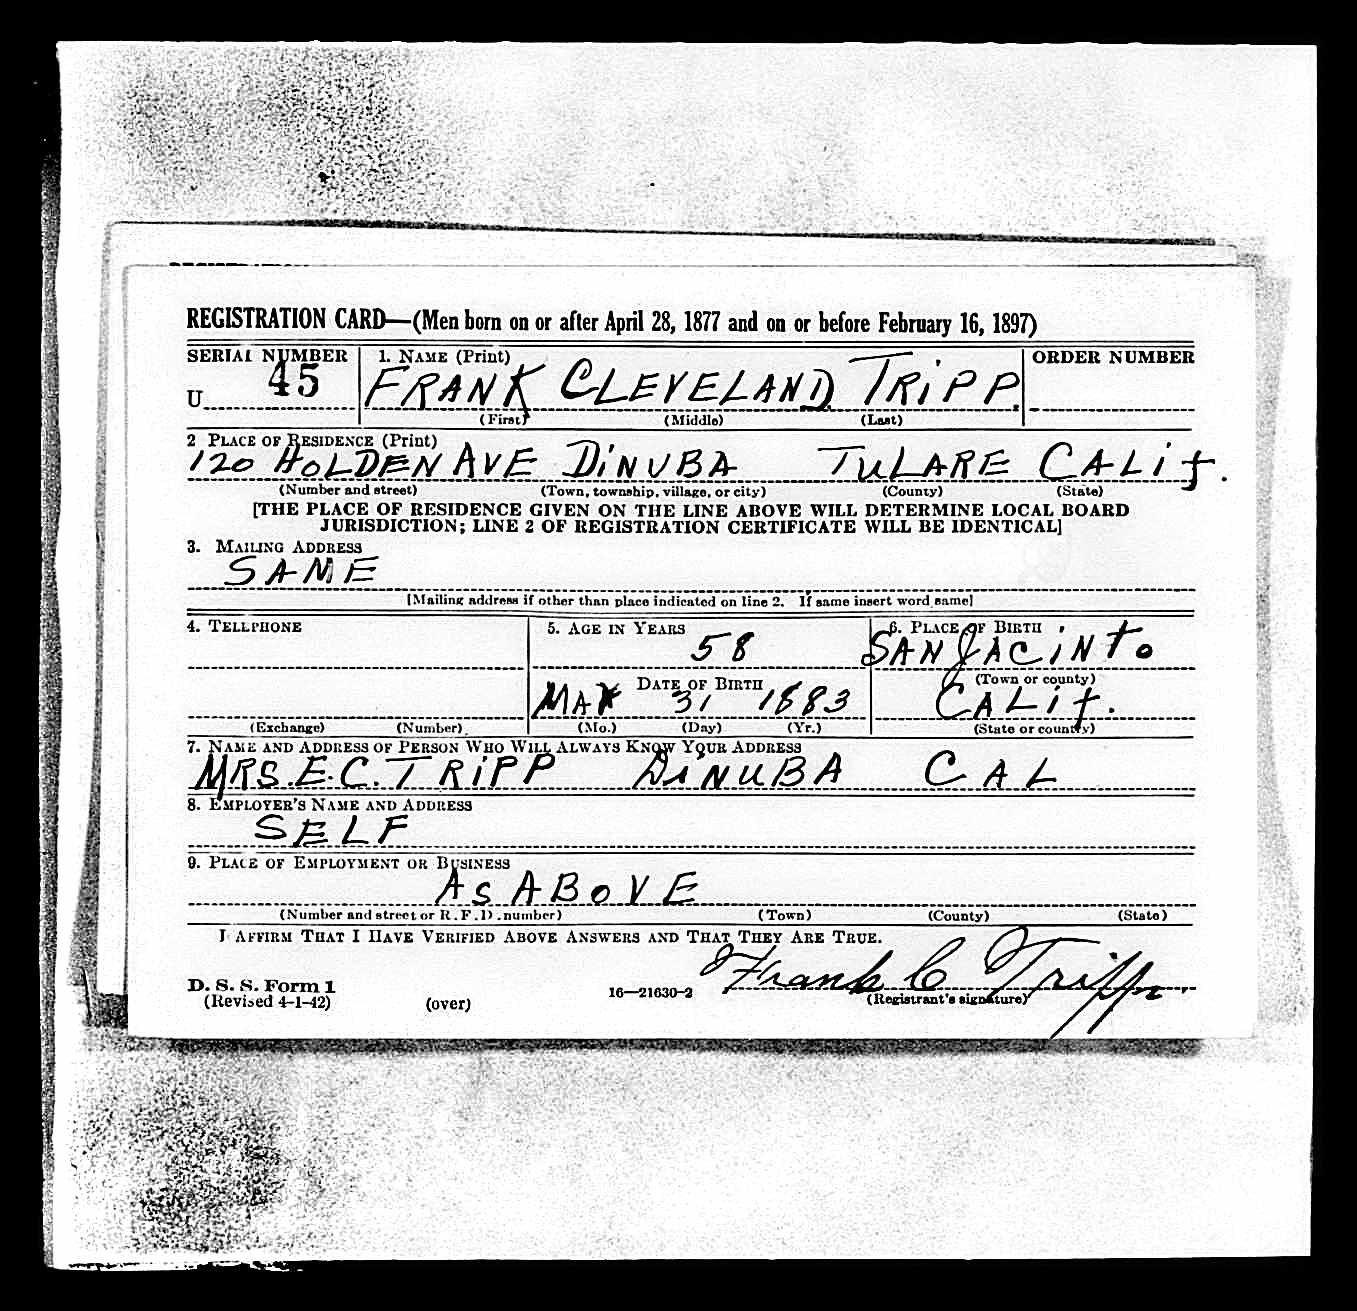 REGISTRATION CARD—(Men born on or after April 28, 1877 and on or before February 16, 1897)
SERIAL NUMBER 1. NAME (Print) ORDER NUMBER
U 45 FRANK CLEVELAND TRiPP
(First) (Middle) (Last)
2 PLACE OF RESIDENCE (Print)
120 HOLDEN AVE DiNUBA TULARE CALif.
(Number and street) (Town, township, village, or city) (County) (State)
[THE PLACE OF RESIDENCE GIVEN ON THE LINE ABOVE WILL DETERMINE LOCAL BOARD
JURISDICTION; LINE 2 OF REGISTRATION CERTIFICATE WILL BE IDENTICAL]
3. MAILING ADDRESS
SAME
[Mailing address if other than place indicated on line 2. If same insert word same]
4. TELEPHONE 5. AGE IN YEARS 6. PLACE OF BIRTH
58 SAN JACiNto
DATE OF BIRTH (Town or county)
31 1883 CALif.
(Exchange) (Number) (Mo.) (Day) (Yr.) (State or country)
7. NAME AND ADDRESS OF PERSON WHO WILL ALWAYS KNOW YOUR ADDRESS
MRS. E. C. TRiPP DiNUBA CAL
8. EMPLOYER'S NAME AND ADDRESS
SELF
9. PLACE OF EMPLOYMENT OR BUSINESS
AS ABOVE
(Number and street or R. F. D. number) (Town) (County) (State)
I AFFIRM THAT I HAVE VERIFIED ABOVE ANSWERS AND THAT THEY ARE TRUE.
Frank C Tripp.
D. S. S. Form 1
(Revised 4-1-42) (over) 16—21630-2 (Registrant's signature)